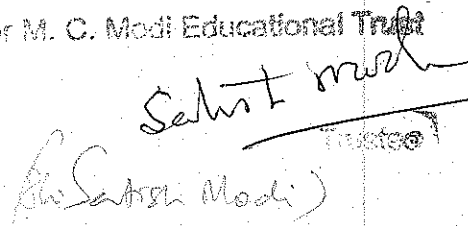 r M. C. Modi Educational Trust
Satish Modi
Trustee
(Shri Satish Modi)